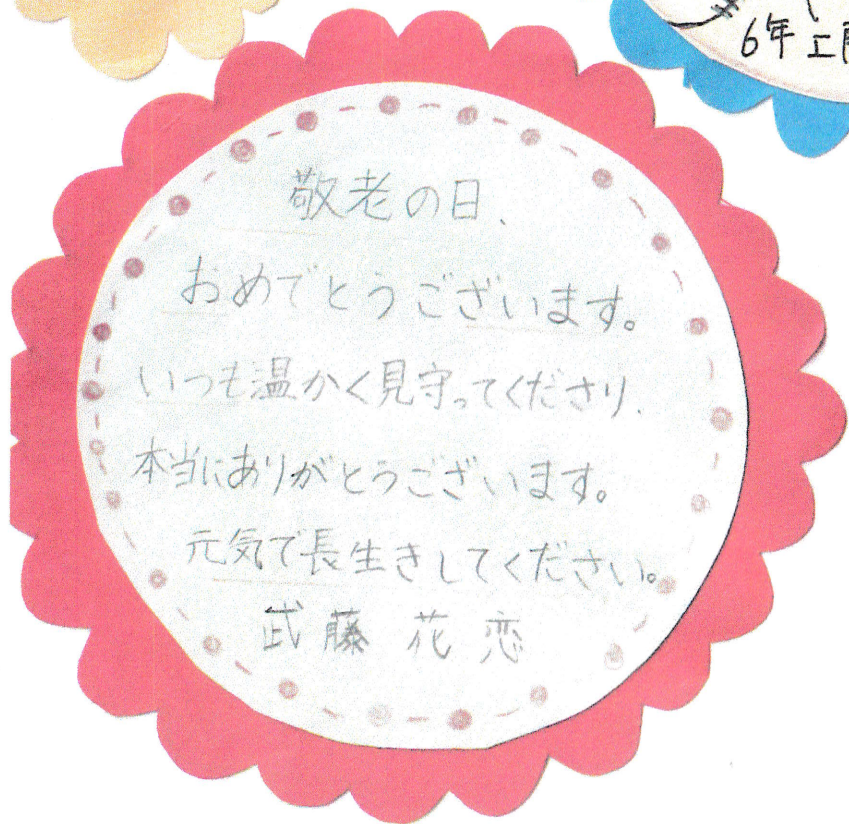 6年
敬老の日、
おめでとうございます。
いつも温かく見守ってくださり、
本当にありがとうございます。
元気で長生きしてください。
武藤 花恋